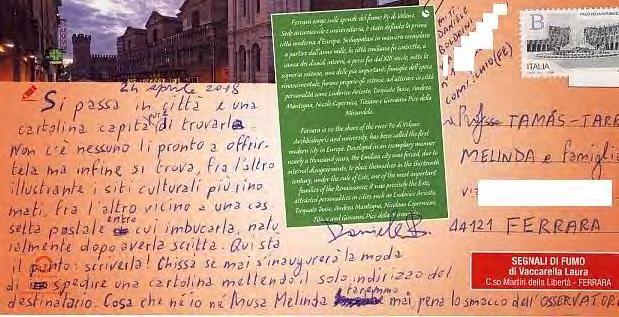 24 aprile 2018
Si passa in città e una
cartolina capita pur di trovarla.
Non c'è nessuno lì pronto a offrir-
tela ma infine si trova, fra l'altro
illustrante i siti culturali più rino
mati, fra l'altro vicino a una cas-
setta postale entro cui imbucarla, natu
ralmente dopo averla scritta. Qui sta
il punto: scriverla! Chissà se mai s'inaugurerà la moda
di spedire una cartolina mettendo il solo indirizzo del
destinatario. Cosa che né io né Musa Melinda faremmo mai, pena lo smacco dell'OSSERVATORI
Ferrara sorge sulle sponde del fiume Po di Volano.
Sede arcivescovile e universitaria, è stata definita la prima
città moderna d'Europa. Sviluppatasi in maniera esemplare
a partire dall'anno mille, la città emiliana fu costretta, a
causa dei dissidi interni, a porsi fin dal XIII secolo sotto la
signoria estense, una delle più importanti famiglie dell'epoca
rinascimentale; furono proprio gli estensi, ad attrarre in città
personalità come Ludovico Ariosto, Torquato Tasso, Andrea
Mantegna, Nicolò Copernico, Tiziano e Giovanni Pico della
Mirandola.
Ferrara is on the shore of the river Po di Volano.
Archbishopric and university, has been called the first
modern city in Europe. Developed in an exemplary manner
nearly a thousand years, the Emilian city was forced, due to
internal disagreements, to place themselves in the thirteenth
century, under the rule of Este, one of the most important
families of the Renaissance; it was precisely the Este,
attracted personalities in cities such as Ludovico Ariosto,
Torquato Tasso, Andrea Mantegna, Nicolaus Copernicus,
Titian and Giovanni Pico della
Daniele B.
MIT:
DANIELE
BOLDRINI
COMACCHIO (FE)
B
ITALIA
TAMÁS-TARR
MELINDA e famiglia
44121 FERRARA
SEGNALI DI FUMO
di Vaccarella Laura
C.so Martiri della Libertà - FERRARA